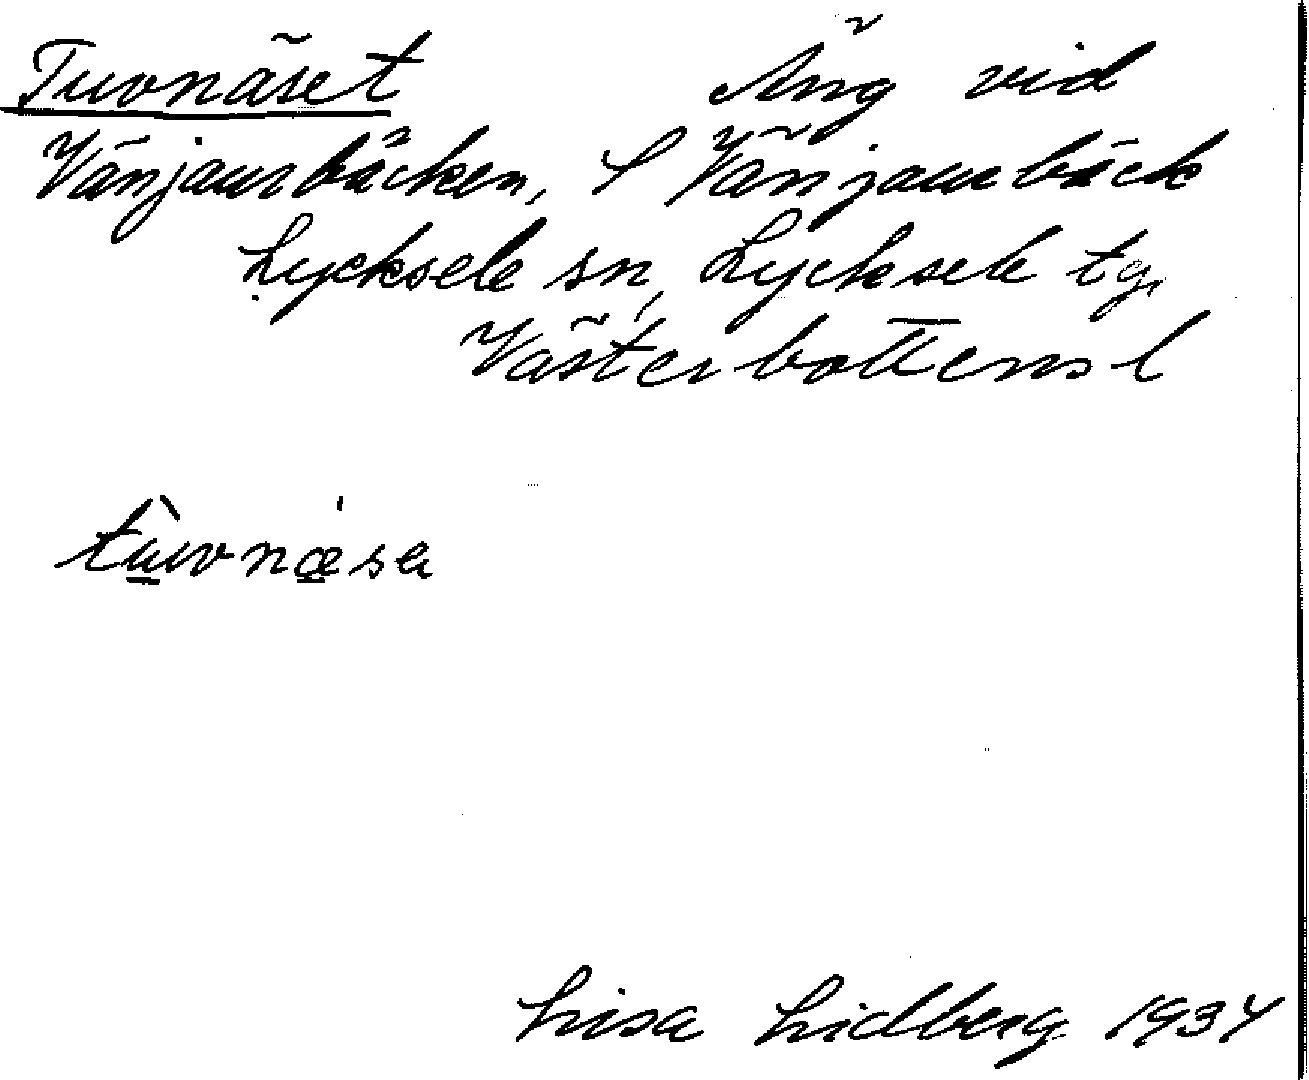 Tuvnäset Äng vid
Vänjaurbäcken, S Vänjaurbäck
Lycksele sn, Lycksele tg,
Västerbottens l
tùvnæ̍sa
Lisa Lidberg 1934